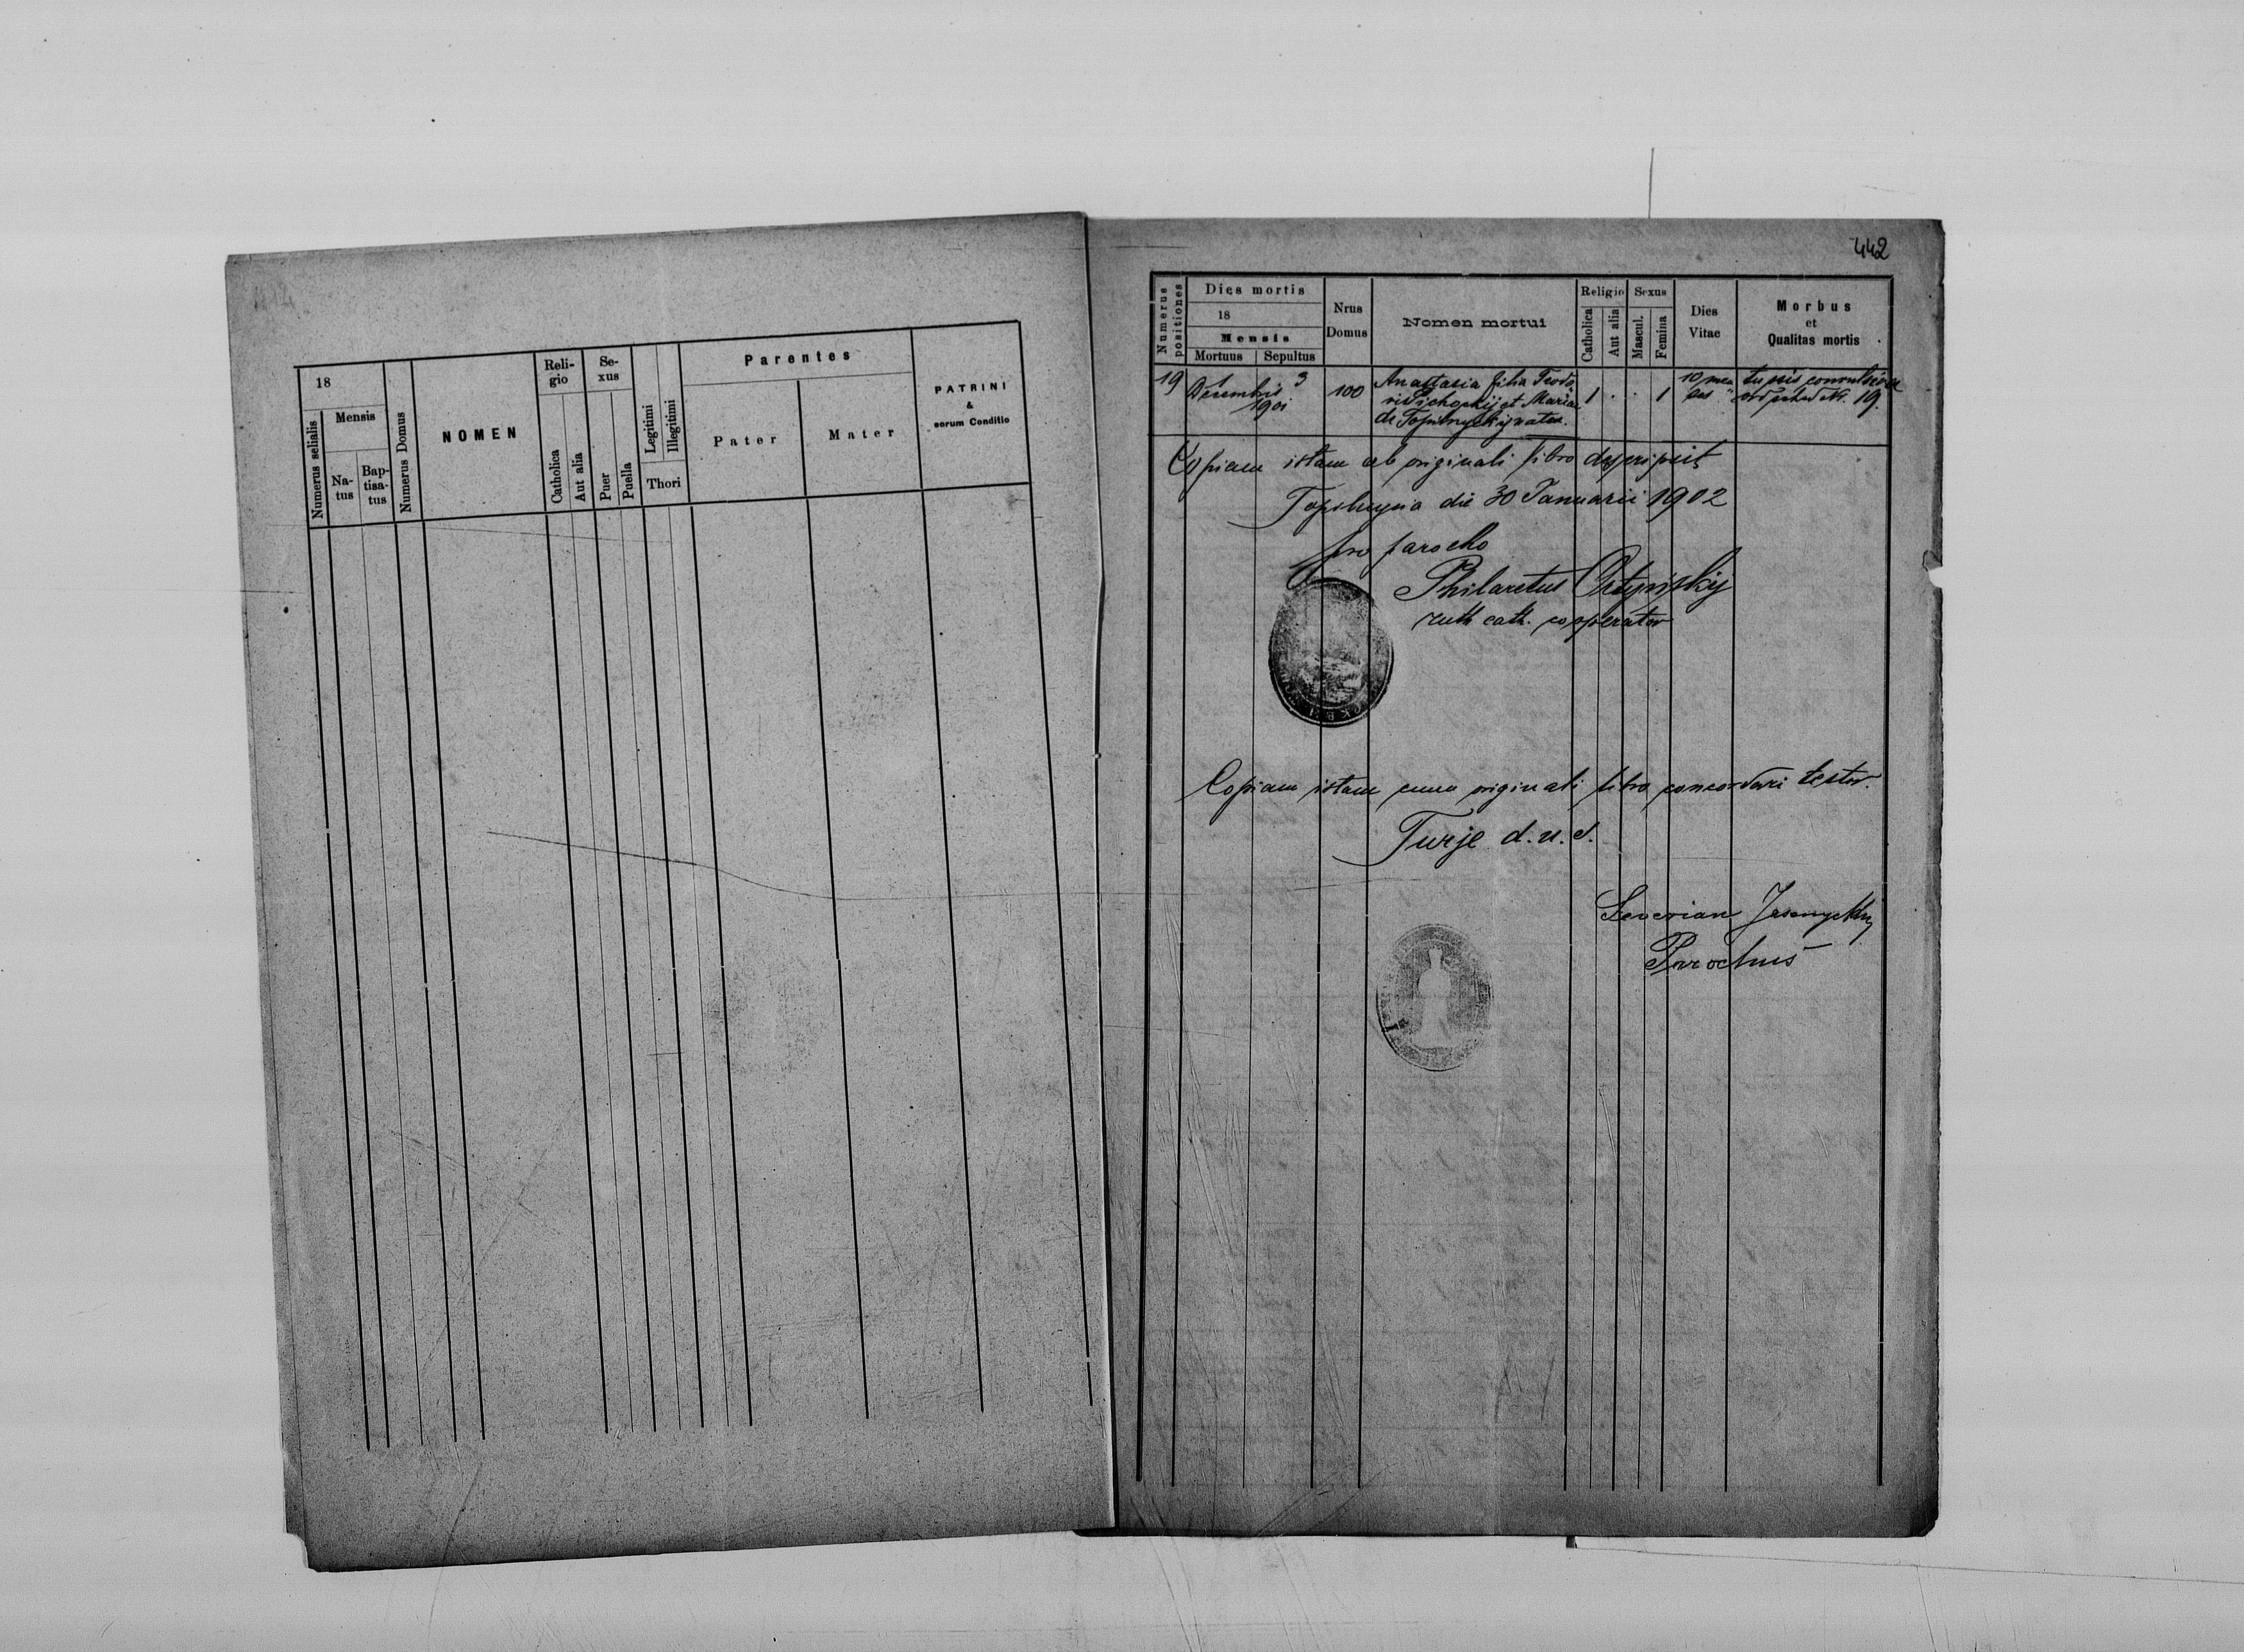 18
Mensis
Numerus selialis
Na-
tus
Bap-
tisa-
tus
Numerus Domus
NOMEN
Reli-
gio
Catholica
Aut alia
Se-
xus
Puer
Puella
Legitimi
Illegitimi
Thori
Parentes
Pater
Mater
PATRINI
&
eorum Conditio
442
Numerus
positiones
Dies mortis
18
Mensis
Mortuus
Sepultus
Nrus
Domus
Nomen mortui
Religio
Catholica
Aut alia
Sexus
Mascul.
Femina
Dies
Vitae
Morbus
et
Qualitas mortis
19
1 3
Decembris
1901
100
Anastasia filia Teodo
et Mariae
de Topilnyckij natae.
1 . . 1
10 men
ses
tussis convulsiva
N. 19.
Copiam istam ab originali libro descripsit
Topilnycia die 30 Januarii 1902
pro parocho
Philaretus Ortynskij
ruth cath. cooperator
Copiam istam cum originali libro concordari testor.
Turje d.u.s.
Severian Jasenyckij
Parochus